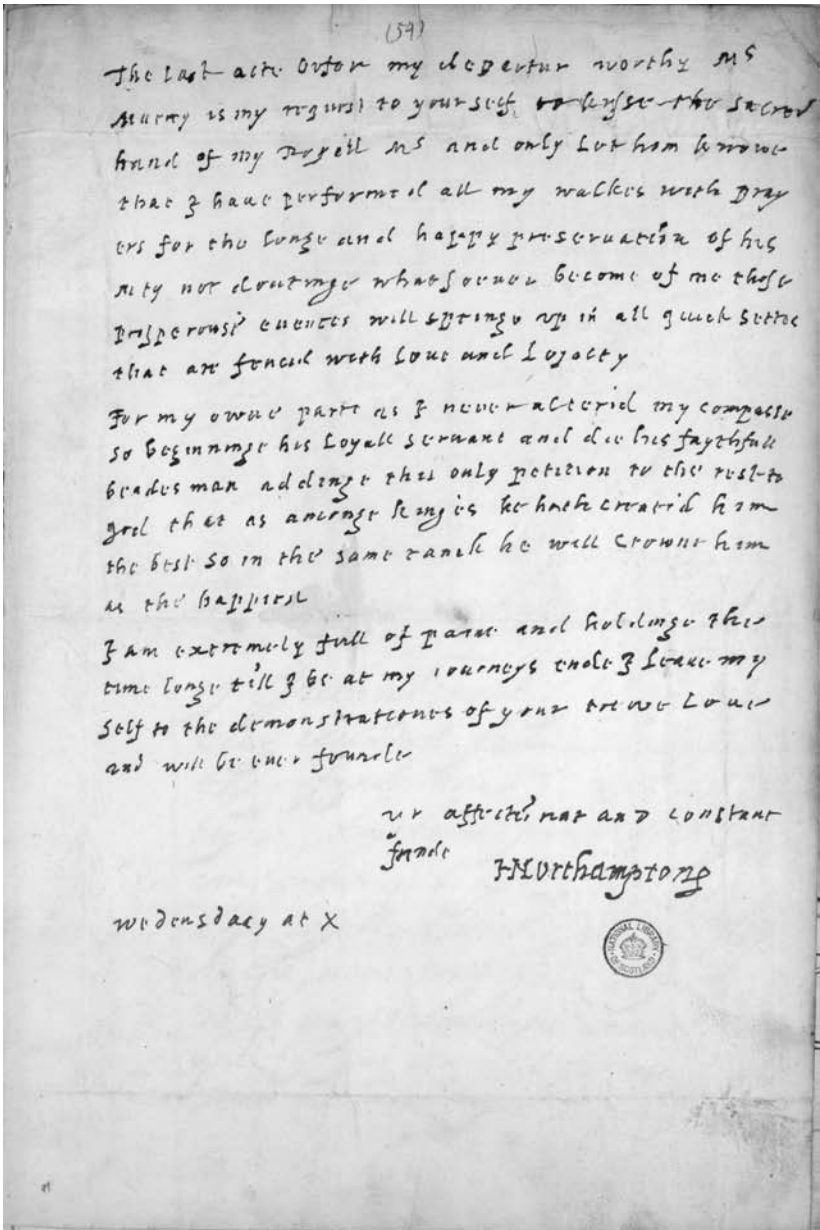 (54)
The last acte befor my departur worthy Mr
Murray is my request to yourself to kysse the sacred
hand of my Royall Mr and only let hem knowe
that I haue performed all my walkes with pray
ers for the longe and happy preseruation of his
Mty not doutinge whatsoeuer become of me those
prosperouse euentes will springe vp in all quick settes
that are fencid with loue and Loyalty
For my owne parte as I neuer alterid my compasse
so beginninge his Loyall seruant and die his faythfull
beadesman addinge this only petition to the rest to
god that as amonge kinges he hath creatid him
the best so in the same ranck he will crowne him
as the happiest
I am extremely full of paine and holdinge the
time longe till I be at my iourneys ende I leaue my
self to the demonstrationes of your trewe Loue
and will be euer founde
yr affectionat and constant
frinde
HNorthampton
wedensdaey at X
NATIONAL LIBRARY OF SCOTLAND